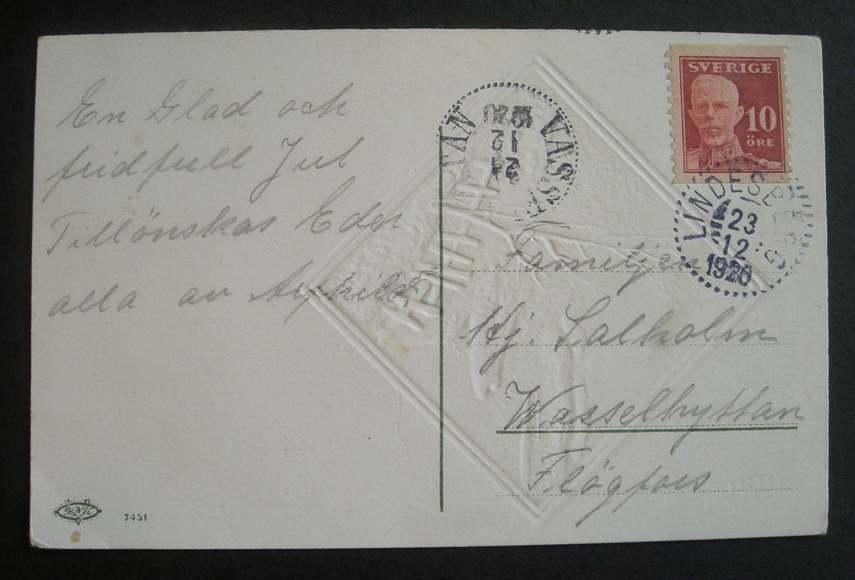 En Glad och
fridfull Jul
Tillönskas Eder
alla av
SVERIGE
10
ÖRE
LINDESBERG
23
12
1920
24
12
1920
Familjen
Hj. Salholm
Wasselhyttan
Flögfors
7451